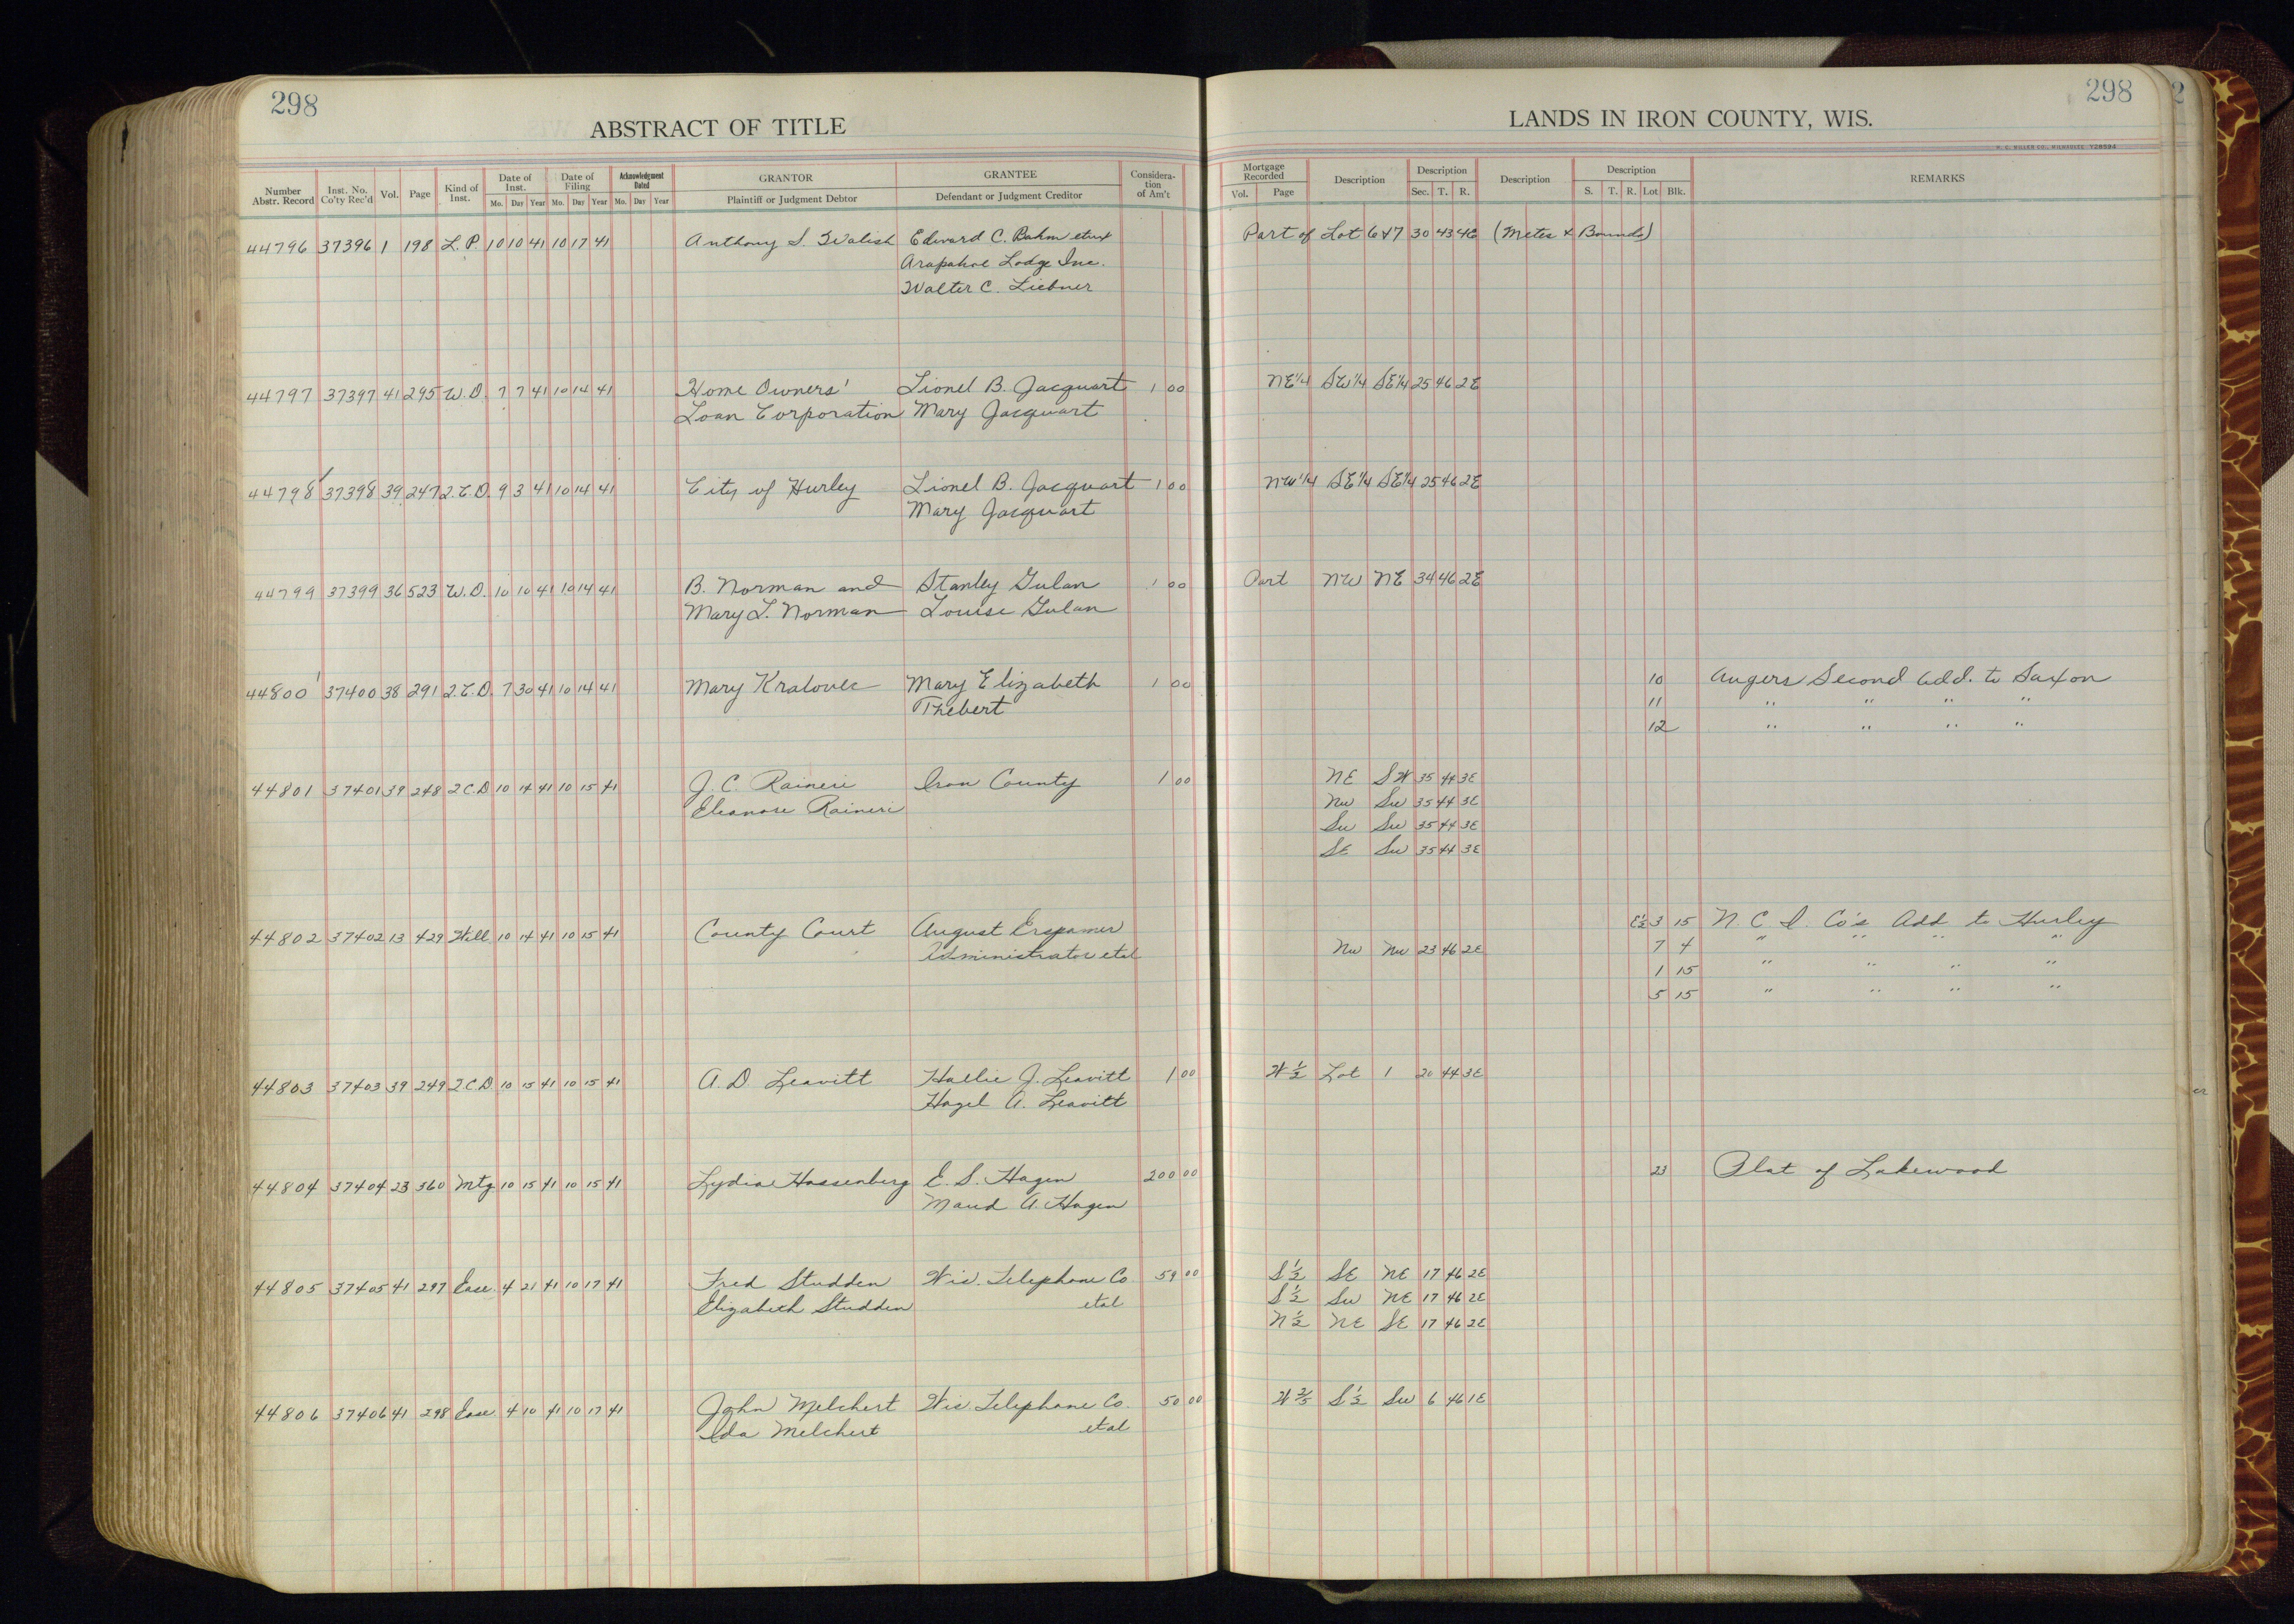 298
298
2
ABSTRACT OF TITLE
LANDS IN IRON COUNTY, WIS.
H. C. MILLER CO., MILWAUKEE Y28594
Number Abstr. Record Inst. No. Co'ty Rec'd Vol. Page Kind of Inst. Date of Inst. Mo. Day Year Date of Filing Mo. Day Year Acknowledgment Dated Mo. Day Year GRANTOR Plaintiff or Judgment Debtor GRANTEE Defendant or Judgment Creditor Considera-tion of Am't Mortgage Recorded Vol. Page Description Description Sec. T. R. Description Description S. T. R. Lot Blk. REMARKS
44796 37396 1 198 L.P. 10 10 41 10 17 41 Anthony S. Walish Edward C. Rahm etux Part of Lot 6 & 7 30 43 4E (Metes & Bounds)
Arapahoe Lodge Inc.
Walter C. Liebner
44797 37397 41 295 W.D. 7 7 41 10 14 41 Home Owners' Lionel B. Jacquart 1 00 NE1/4 SW1/4 SE1/4 25 46 2E
Loan Corporation Mary Jacquart
44798 37398 39 247 2.C.D. 9 3 41 10 14 41 City of Hurley Lionel B. Jacquart 1 00 NW1/4 SE1/4 SE1/4 25 46 2E
Mary Jacquart
44799 37399 36 523 W.D. 10 10 41 10 14 41 B. Norman and Stanley Gulan 1 00 Part NW NE 34 46 2E
Mary L. Norman Louise Gulan
44800 37400 38 291 2.C.D. 7 30 41 10 14 41 Mary Kralovec Mary Elizabeth 1 00 10 Augers Second Add. to Saxon
Thebert 11 " " " "
12 " " " "
44801 37401 39 248 2CD 10 14 41 10 15 41 J. C. Raineri Iron County 1 00 NE SW 35 44 3E
Eleanore Raineri NW SW 35 44 3E
SW SW 35 44 3E
SE SW 35 44 3E
44802 37402 13 429 Will 10 14 41 10 15 41 County Court August Erspamer E½ 3 15 N. C. I. Co's Add to Hurley
Administrator etal NW NW 23 46 2E 7 4 " " " "
1 15 " " " "
5 15 " " " "
44803 37403 39 249 2CD 10 15 41 10 15 41 A. D. Leavitt Hallie J. Leavitt 1 00 W½ Lot 1 20 44 3E
Hazel A. Leavitt
44804 37404 23 360 Mtg 10 15 41 10 15 41 Lydia Hassenberg E. S. Hagen 200 00 23 Plat of Lakewood
Maud A. Hagen
44805 37405 41 297 Ease. 4 21 41 10 17 41 Fred Studden Wis. Telephone Co 59 00 S½ SE NE 17 46 2E
Elizabeth Studden etal S½ SW NE 17 46 2E
N½ NE SE 17 46 2E
44806 37406 41 298 Ease. 4 10 41 10 17 41 John Melchert Wis. Telephone Co. 50 00 W⅖ S½ SW 6 46 1E
Ida Melchert etal